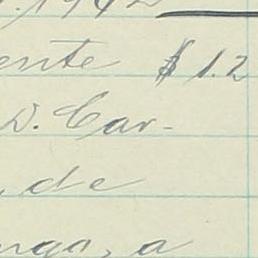 1942
ente $1.2
D. Car-
, de
nga, a